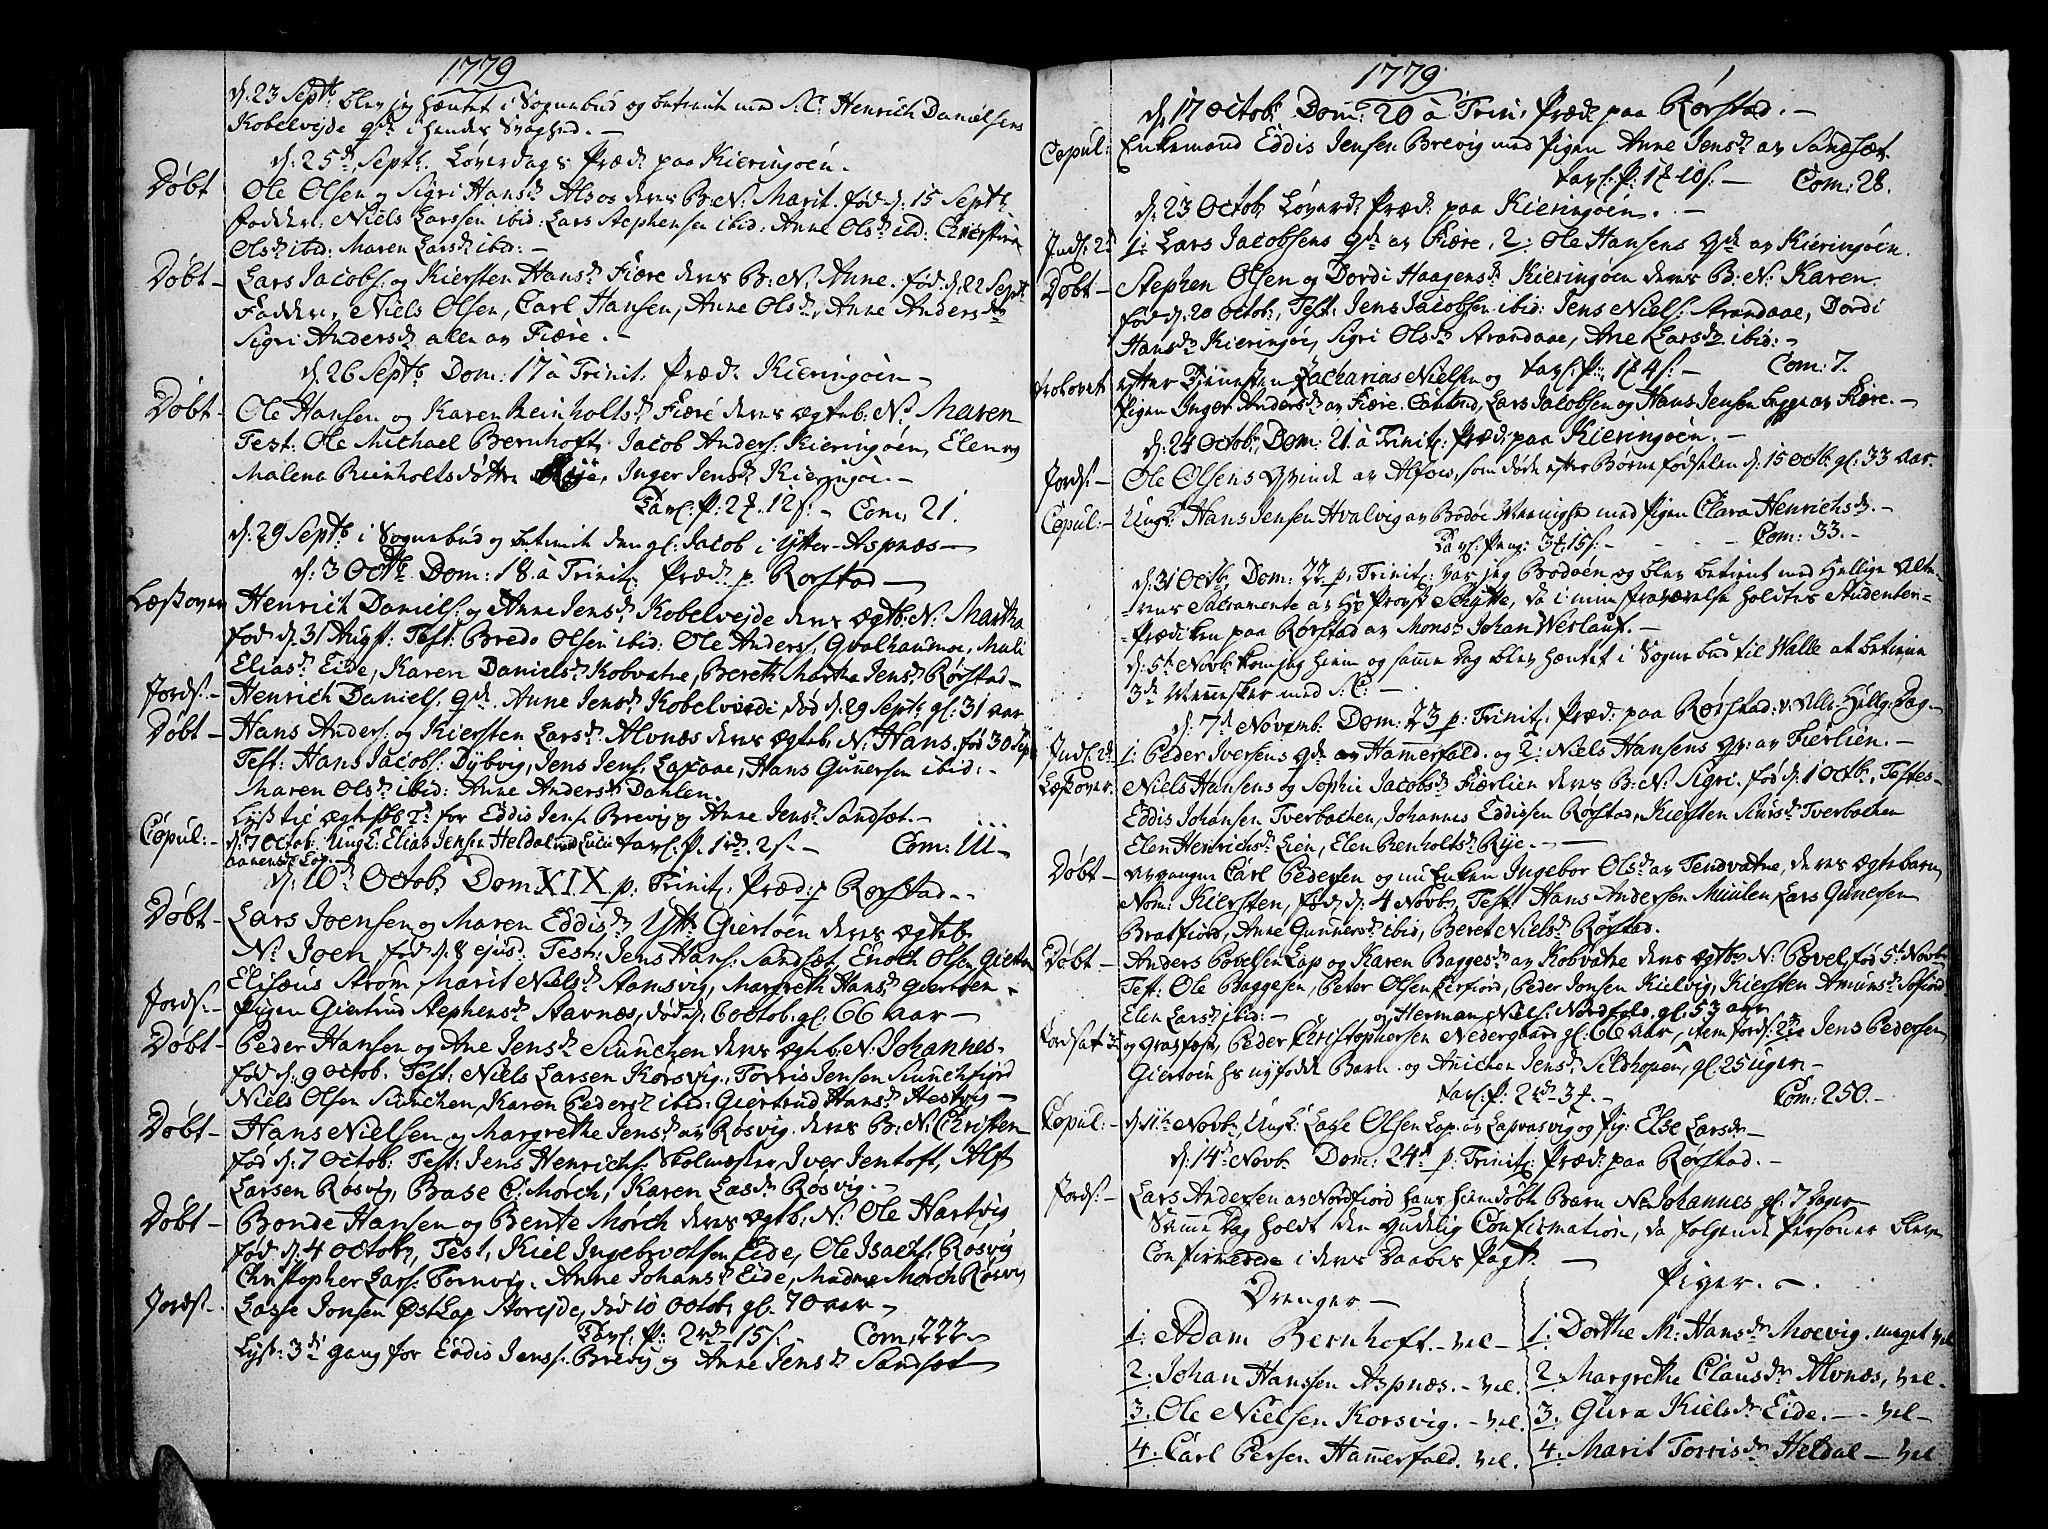 1779
d: 23 Septb: blev jeg hæntet i Sognebud og betient med S: C: Henrich Danielsens
Kobelvejde qde i hendes Svaghed. –
d: 25de Septb. Løverdags Præd: paa Kieringøen.
Døbt Ole Olsen og Sigri Hansd: Alsos deres B. N. Marit. fød d: 15 Septb:
fadder: Niels Larssen ibid: Lars Stephensen ibid: Anne Olsd: ibid: Christina
Olsd: ibid: Maren Larsd: ibid: –
Døbt – Lars Jacobs: og Kiersten Hansd: Fiære deres B: N: Anne. fød: d: 22 Septb:
Fadder, Niels Olsen, Carl Hansen, Anne Olsd:, Anne Andersdr
Sigri Andersd: allen av Fiære. –
d: 26 Septb: Dom: 17 à Trinit: Præd: Kieringøen –
Døbt – Ole Hansen og Karen Reinholtsd: Fiære deres ægteb: N: Maren
Test: Ole Michael Bernhoft, Jacob Anders: Kieringøen, Elen og
Malena Reinholtsdøttre Rije, Inger Jensd: Kieringøe. –
Tavl: P: 2 . 12 s: – Com: 21.
d: 29 Septb: i Sognebud og betient den gl: Jacob i Ytter-Aspnæs –
d: 3 Octb: Dom: 18. à Trinit: Præd: p: Rørstad –
Læst over Henrich Daniels: og Anne Jensd: Kobelvejde deres ægtb: N: Martha
fød d: 31 Augst: Test: Bredo Olsen ibid: Ole Anders: Qvalhammer, Mali
Eliasd: Eide, Karen Danielsd: Kobvatne, Bereth Martha Jensd: Rørstad –
Jords: – Henrich Daniels: qde. Anne Jensd: Kobelveide, død d: 29 Septb: gl: 31 aar
Døbt – Hans Anders: og Kiersten Larsd: Alvnæs deres ægteb: N: Hans. fød 30 Sept
Test: Hans Jacobs: Dybvig, Jens Jens: Laxaae, Hans Gunnersen ibid: –
Maren Olsd: ibid: Anne Andersd: Dahlen.
Lyst til ægtesk: 2d for Eddis Jens: Brevig og Anne Jensd: Sandsæt. –
Copul: – d: 7 Octob: Ungk: Elias Jensen Heldal med Lucie Tavl: P. 1 rd. 2 s: – Com: 111 –
Aanensd: Lap. –
d: 10de Octob: Dom XIX p: Trinit: Præd: p Rørstad –
Døbt – Lars Joensen og Maren Eddisd: Ytt: Giertøen deres ægteb
N: Joen, fød d: 8 ejusd: Test: Jens Hans: Sandsæt, Enoch Olsen Giertøe
Elisæus Strøm, Marit Nielsd: Stamsvig, Margreth Hansd: Giertøen –
Jords: – Pigen Giertrud Stephensd: Stavnæs, død d: 6 octob: gl: 66 aar –
Døbt – Peder Hansen og Ane Jensd: Siunchen deres ægteb: N: Johannes.
fød d: 9 Octob. Test: Niels Larsen Korsvig, Torris Jensen Siunchfiord
Niels Olsen Siunchen, Karen Pedersd: ibid: Giertrud Hansd: Hestvig –
Døbt – Hans Nielsen og Margrethe Jensd: av Røsvig. deres B: N: Christen
fød d: 7 Octob: Test: Jens Henrichs: Skolmester, Iver Jentoft, Alf
Larsen Røsvig, Base C: Morch, Karen Lasd: Røsvig. –
Døbt – Bonde Hansen og Bente Mørch deres ægtb: N: Ole Hartvig
fød d: 4 October, Test, Kiel Ingebrectsen Eide, Ole Isachs: Røsvig
Christopher Lars: Tornvig. Anne Johansd: Eide, Madme Morch Røsvig
Jords: – Lasse Jonsen Øst Lap Storejde, død 10 Octob: gl. 70 aar –
Tavl: P: 2 rd – 15 s: – Com: 222 –
Lyst: 3die Gang for Eddis Jenss: Brevig og Anne Jensd: Sandsæt
1779
d: 17 Octob: Dom: 20 à Trin: Præd: paa Rørstad. –
Copul: Enkemand Eddis Jensen Brevig med Pigen Anne Jensd: av Sandsæt.
Tavl: P: 1 10 s: – Com: 28.
d: 23 Octob: Løverd: Præd: paa Kieringøen. –
Inds: 2de 1: Lars Jacobsens qde av Fiære, 2: Ole Hansens Qde av Kieringøen.
Døbt – Stephen Olsen og Dordi Haagensd: Kieringøen deres B: N: Karen.
fød d: 20 Octob:, Test: Jens Jacobsen ibid: Jens Niels: Strandaae, Dordi
Hansd: Kieringøe, Sigri Olsd: Strandaae, Ane Larsd: ibid: –
Tavl: P: 1 4 s: – Com: 7.
Trolovet efter Tjenesten Zacharias Nielsen og
Pigen Inger Andersd: av Fiære. Cautend, Lars Jacobsen og Hans Jensen begge av Fiære. –
d: 24 Octob: Dom: 21. à Trinit: Præd: paa Kieringøen. –
Jords: – Ole Olsens Qvinde av Alsos, som døde efter Børne fødselen d: 15 Octb: gl: 33 aar.
Copul: – Ungk: Hans Jensen Hvalvig av Bodøe Menighed med Pigen Clara Henrichsd: –
Tavl: Peng: 3 15 s: – Com: 33. –
d: 31 Octb: Dom: 22 p: Trinit: var jeg Bodøen og blev betient med Hellige Alte-
rens Sacramente av Hr Provst Schytte, da i min fraværelse holdtes Studenter-
Prædiken paa Rørstad av Monsr Johan Weslauf. –
d: 5te Novb: kom jeg hiem og samme Dag blev hæntet i Sognebud til Walle at betiene
3de Mennesker med S: C: –
d: 7de Novemb: Dom: 23 p: Trinit: Præd: paa Rørstad: v: Alle-Hellg: Dag –
Inds: 2de 1: Peder Iversens qde av Hammerfald. og 2: Niels Hansens Qv: av Fierlien. –
Læst over Niels Hansens og Sophie Jacobsd: Fiærlien deres B: N: Sigri. fød d: 1 Octb:, Testes –
Eddis Johansen Tverbachen, Johannes Eddissen Rørstad, Kiersten Siursd: Tverbachen
Elen Henrichsd: Lien, Elen Renholtsd: Rije. –
Døbt – avgangen Carl Pedersen og nu Enken Ingebor Olsd: av Tendvatne, deres ægtebarn
Nom: Kiersten, fød d: 4 Novb: Test Hans Andersen Miulen Lars Gunersen
Bratfiord, Anne Gunnersd: ibid, Beret Nielsd: Rørstad.
Døbt – Anders Povelsen Lap og Karen Baggesd: av Kobvatne deres ægtb: N: Povel fød 5te Novb:
Test: Ole Baggesen, Peter Olsen Leirfiord, Peder Jonsen Kielvig, Kiersten Amunsd: Sefiord
Elen Larsd: ibid: – og Herman Niels: Nordfold, gl: 53 aar
Jordsat 3: og Gravfæst, Peder Christophersen Nedergaard gl: 66 aar, item Jords: 2de Jens Pedersen
Giertøen hs nyfødde Barn. og Anichen Jensd: Sildhopen, gl: 25 uger –
Tavl: P: 2 rd 3 . – Com: 250. –
Copul: – d: 11te Novb:, Ungk: Lasse Olsen Lap. av Lapvasvig og Pig: Else Larsd: –
d: 14de Novb: Dom: 24de p: Trinit: Præd: paa Rørstad. –
Jords: – Lars Andersen av Nordfiord hans hiemdøbt Barn N: Johannes gl: 7 Dager
Samme Dag holdt den Gudelig Confirmation, da følgende Personer bleve
Confirmerede i deres Daabes Pagt. –
Drenger –
1: Adam Bernhoft. – vel –
2. Johan Hanssen Aspnæs. – vel.
3. Ole Nielsen Korsvig. – vel.
4. Carl Persen Hamerfald. vel.
Piger. –
1: Dorthe M: Hansdr Moevig. meget vel
2. Margrethe Clausdr Alvnæs, vel –
3. Gura Kielsdr Eide. – vel –
4. Marit Torrisdr Heldal – vel